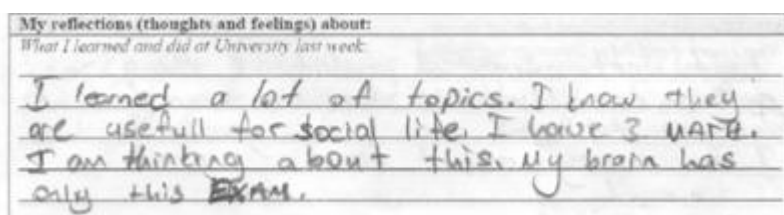 My reflections (thoughts and feelings) about:
What I learned and did at University last week:
I learned a lot of topics. I know they
are usefull for social life. I have 3 MATH.
I am thinking about this. My brain has
only this EXAM.